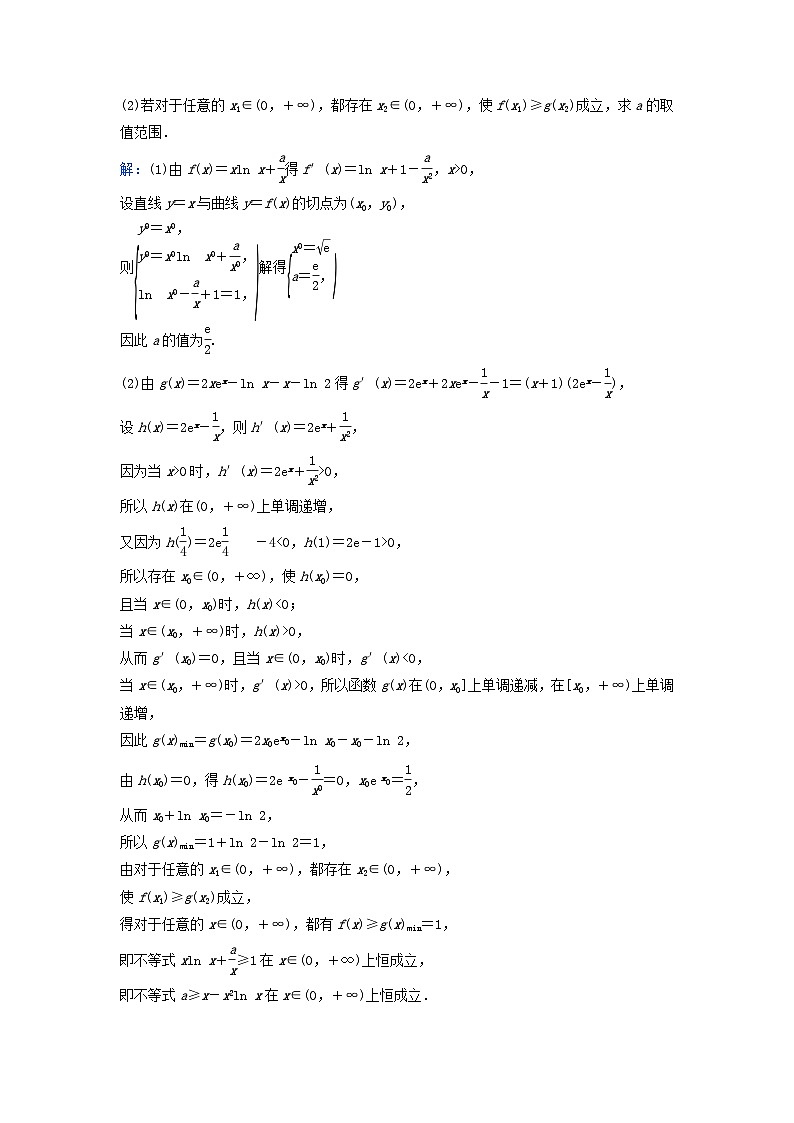 (2)若对于任意的 x₁∈(0,+∞),都存在 x₂∈(0,+∞),使 f(x₁)≥g(x₂)成立,求 a 的取
值范围.
解:(1)由 f(x)=xln x+a/x得 f′(x)=ln x+1-a/x²,x>0,
设直线 y=x 与曲线 y=f(x)的切点为(x₀,y₀),
则{y⁰=x⁰, y⁰=x⁰ln x⁰+a/x⁰, ln x⁰-a/x+1=1,}解得{x⁰=√e a=e/2,}
因此 a 的值为e/2.
(2)由 g(x)=2xeˣ-ln x-x-ln 2 得 g′(x)=2eˣ+2xeˣ-1/x-1=(x+1)(2eˣ-1/x),
设 h(x)=2eˣ-1/x,则 h′(x)=2eˣ+1/x²,
因为当 x>0 时,h′(x)=2eˣ+1/x²>0,
所以 h(x)在(0,+∞)上单调递增,
又因为 h(1/4)=2e1/4 -4<0,h(1)=2e-1>0,
所以存在 x₀∈(0,+∞),使 h(x₀)=0,
且当 x∈(0,x₀)时,h(x)<0;
当 x∈(x₀,+∞)时,h(x)>0,
从而 g′(x₀)=0,且当 x∈(0,x₀)时,g′(x)<0,
当 x∈(x₀,+∞)时,g′(x)>0,所以函数 g(x)在(0,x₀]上单调递减,在[x₀,+∞)上单调
递增,
因此 g(x)min=g(x₀)=2x₀eˣ⁰-ln x₀-x₀-ln 2,
由 h(x₀)=0,得 h(x₀)=2e ˣ⁰-1/x⁰=0,x₀e ˣ⁰=1/2,
从而 x₀+ln x₀=-ln 2,
所以 g(x)min=1+ln 2-ln 2=1,
由对于任意的 x₁∈(0,+∞),都存在 x₂∈(0,+∞),
使 f(x₁)≥g(x₂)成立,
得对于任意的 x∈(0,+∞),都有 f(x)≥g(x)min=1,
即不等式 xln x+a/x≥1 在 x∈(0,+∞)上恒成立,
即不等式 a≥x-x²ln x 在 x∈(0,+∞)上恒成立.